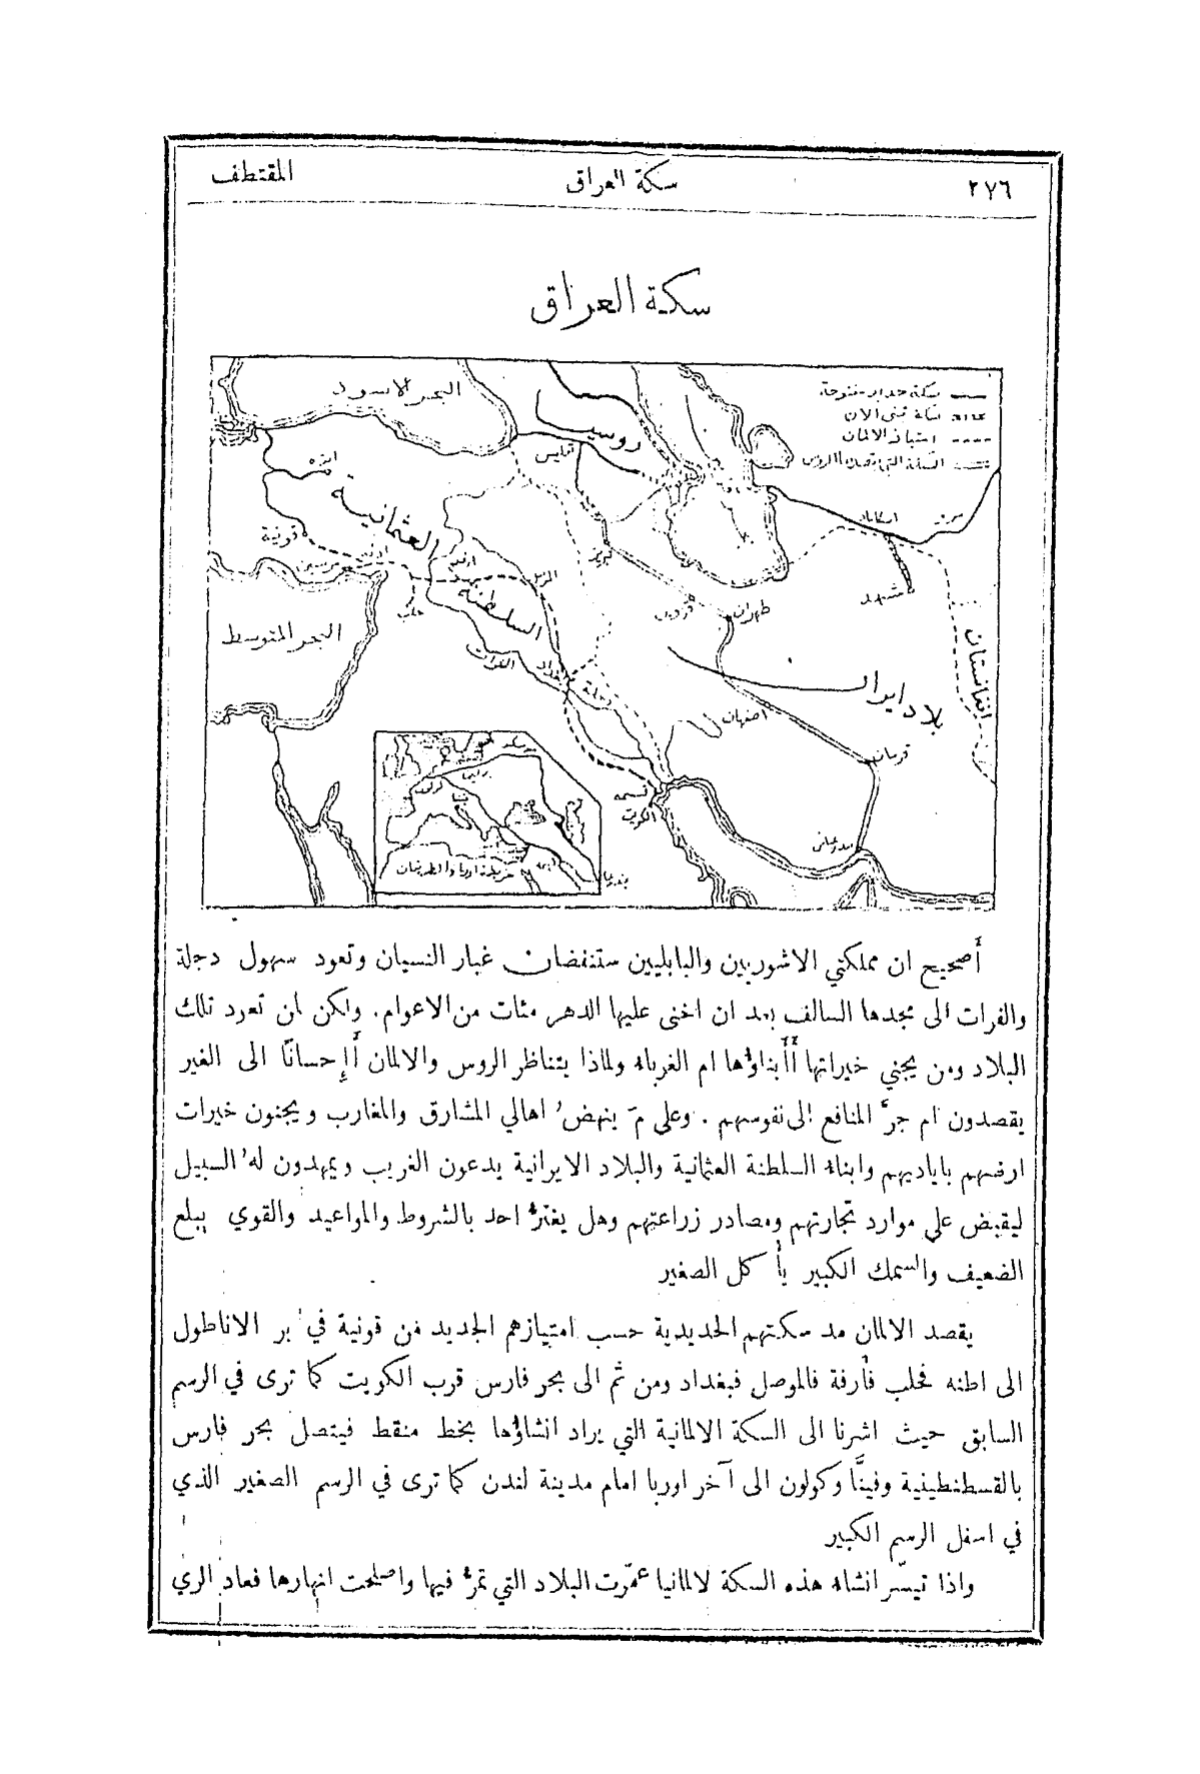 ٢٧٦
سكة العراق
المقتطف
سكة العراق
البحر الاسود
سكة حديد مفتوحة
سكة تبنى الآن
امتياز الالمان
السكة التي قصدها الروس
روسيا
تفليس
العثمانية
السلطنة
قونية
مرسين
حلب
الفرات
دجلة
بغداد
تبريز
قزوين
طهران
مشهد
البحر المتوسط
بلاد ايران
افغانستان
اصفهان
الكويت
أصحيح ان مملكتي الاشوريين والبابليين ستنفضان غبار النسيان وتعود سهول دجلة
والفرات الى مجدها السالف بعد ان اخنى عليها الدهر مئات من الاعوام. ولكن لمن تعود تلك
البلاد ومن يجني خيراتها أأبناؤها ام الغرباء ولماذا يتناظر الروس والالمان أإحسانًا الى الغير
يقصدون ام جرَّ المنافع الى نفوسهم . وعلى مَ ينهضُ اهالي المشارق والمغارب ويجنون خيرات
ارضهم باياديهم وابناء السلطنة العثمانية والبلاد الايرانية يدعون الغريب ويمهدون لهُ السبيل
ليقبض على موارد تجارتهم ومصادر زراعتهم وهل يغترُّ احد بالشروط والمواعيد والقوي يبلع
الضعيف والسمك الكبير يأكل الصغير
يقصد الالمان مد سكتهم الحديدية حسب امتيازهم الجديد من قونية في بر الاناطول
الى اطنه فحلب فأرفة فالموصل فبغداد ومن ثم الى بحر فارس قرب الكويت كما ترى في الرسم
السابق حيث اشرنا الى السكة الالمانية التي يراد انشاؤها بخط منقط فيتصل بحر فارس
بالقسطنطينية وفينَّا وكولون الى آخر اوربا امام مدينة لندن كما ترى في الرسم الصغير الذي
في اسفل الرسم الكبير
واذا تيسّر انشاء هذه السكة لالمانيا عمّرت البلاد التي تمرُّ فيها واصلحت انهارها فعاد الري